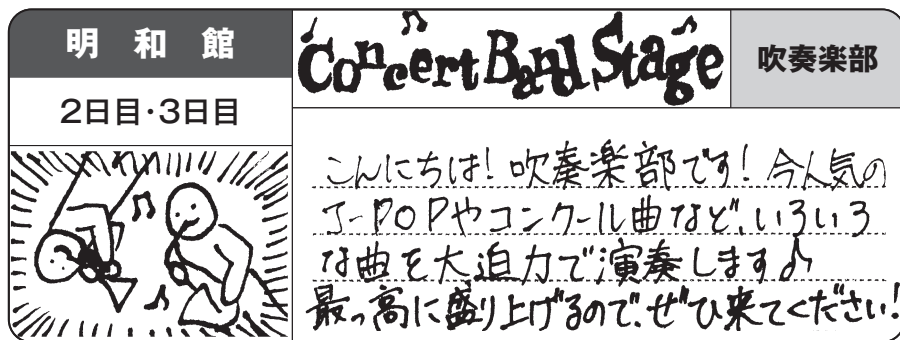 明和館
Concert Band Stage
吹奏楽部
2日目・3日目
こんにちは!吹奏楽部です!今人気の
J-POPやコンクール曲など、いろいろ
な曲を大迫力で演奏します♪
最っ高に盛り上げるので、ぜひ来てください!